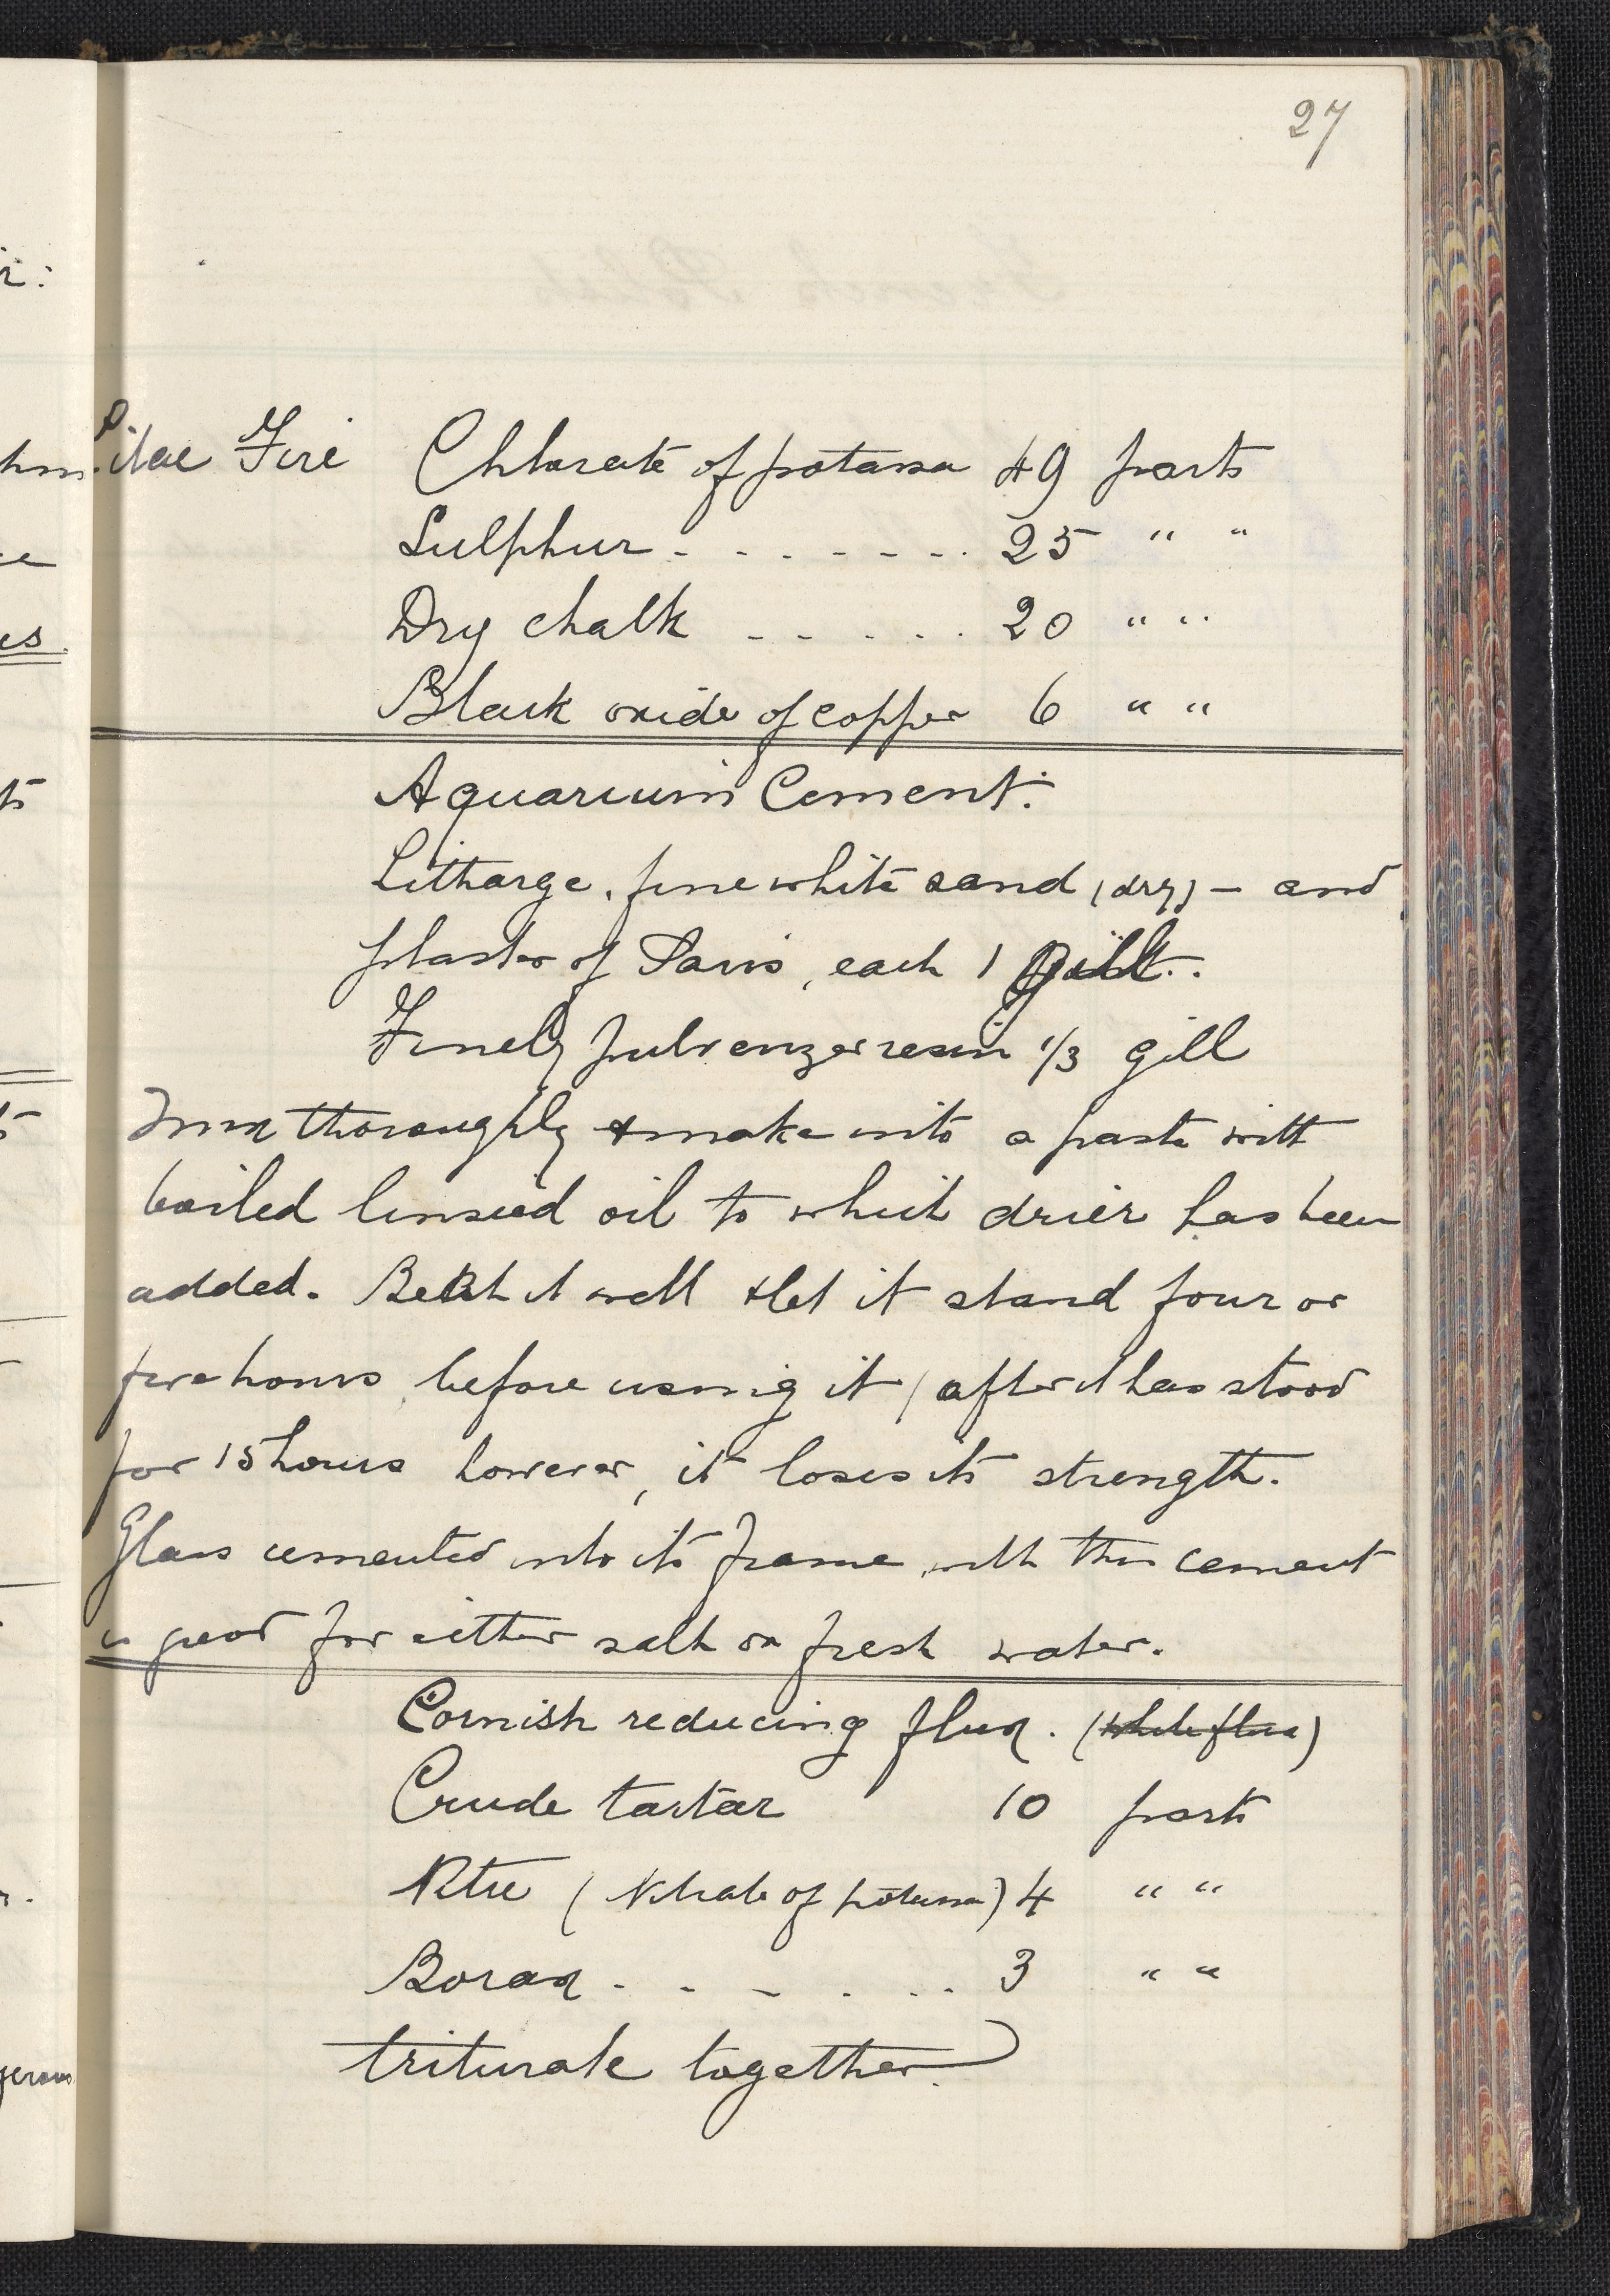 27
Lilac Fire Chlorate of potassa 49 parts
Sulphur - - - - - - - 25 " "
Dry chalk - - - - - 20 " "
Black oxide of copper 6 " "
Aquarium Cement.
Litharge, fine white sand (dry) - and
plaster of Paris, each 1 gill.
Finely pulverized resin 1/3 gill
Mix thoroughly & make into a paste with
boiled linseed oil to which drier has been
added. Beat it well & let it stand four or
five hours before using it (after it has stood
for 15 hours however, it loses its strength.
Glass cemented into its frame with this cement
is good for either salt or fresh water.
Cornish reducing flux. (white flux)
Crude tartar 10 parts
Nitre (Nitrate of potassa) 4 " "
Borax - - - - - - 3 " "
triturate together.